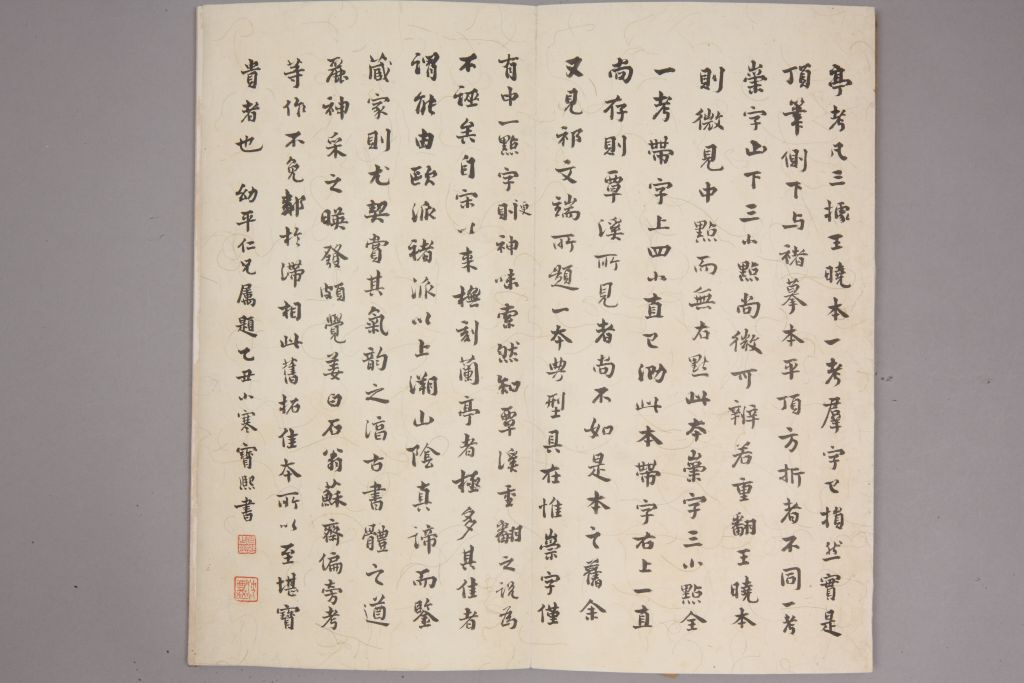 亭考凡三據王曉本一考羣字已損然實是
頂筆側下与褚摹本平頂方折者不同一考
崇字山下三小點尚微可辨若重翻王曉本
則微見中點而無右點此本崇字三小點全
一考帶字上四小直已泐此本帶字右上一直
尚存則覃溪所見者尚不如是本之舊余
又見祁文端所題一本典型具在惟崇字僅
有中一點字則便神味索然知覃溪重翻之説為
不誣矣自宋以来橅刻蘭亭者極多其佳者
謂能由歐派褚派以上溯山陰真諦而鑒
藏家則尤契賞其氣韵之渟古書體之遒
麗神采之暎發頗覺姜白石翁蘇齋偏旁考
等作不免鄰於滯相此舊拓佳本所以至堪寶
貴者也 幼平仁兄属題乙丑小寒寶熙書